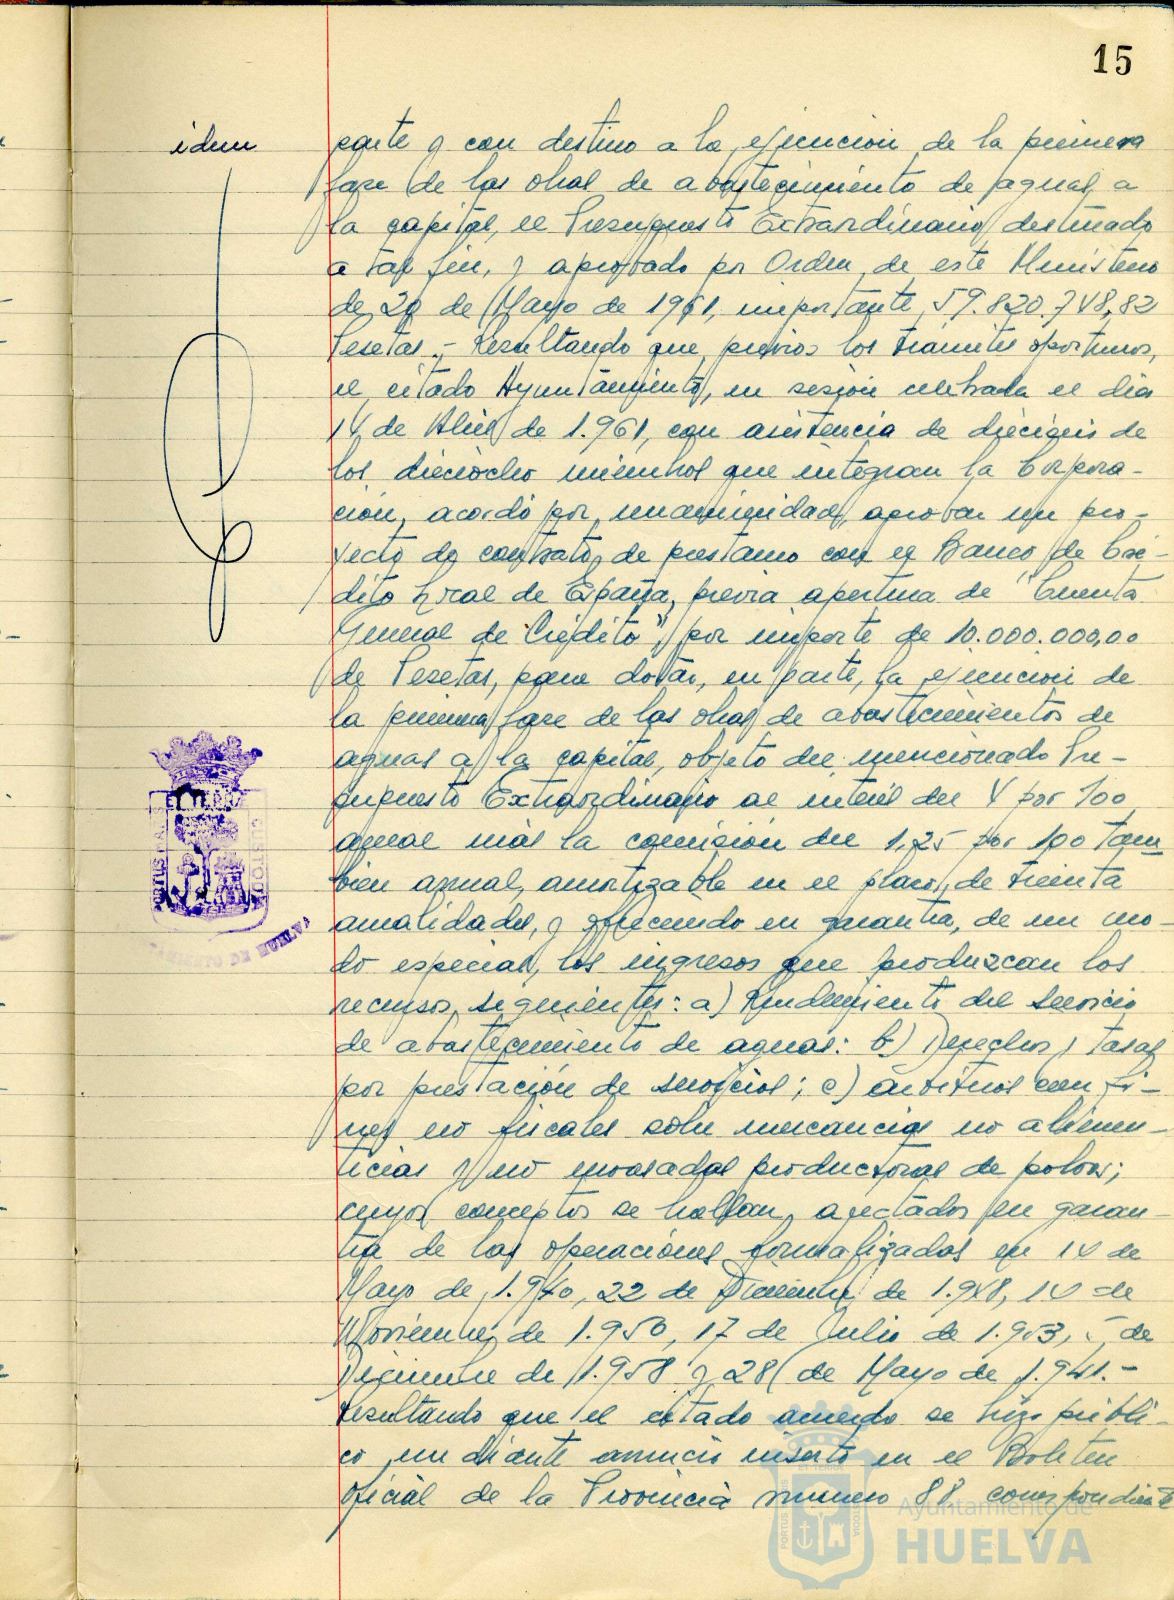 15
idem
parte y con destino a la ejecucion de la primera
fase de las obras de abastecimiento de aguas a
la capital, el Presupuesto Extraordinario destinado
a tal fin, y aprobado por Orden de este Ministerio
de 29 de Mayo de 1961, importante 59.820.748,82
Pesetas.- Resultando que, previos los trámites oportunos,
el citado Ayuntamiento, en sesion celebrada el dia
14 de Abril de 1.961, con asistencia de dieciseis de
los dieciocho miembros que integran la Corpora-
cion, acordó por unanimidad, aprobar un pro-
yecto de contrato de prestamo con el Banco de Cré-
dito Local de España, previa apertura de "Cuenta
General de Crédito", por importe de 10.000.000,00
de Pesetas, para dotar, en parte, la ejecucion de
la primera fase de las obras de abastecimientos de
aguas a la capital, objeto del mencionado Pre-
supuesto Extraordinario al interés del 4 por 100
anual más la comisión del 1,25 por 100 tam
bien anual, amortizable en el plazo de treinta
anualidades, y ofreciendo en garantia, de un mo-
do especial, los ingresos que produzcan los
recursos siguientes: a) Rendimiento del Servicio
de abastecimiento de aguas: b) Derechos y tasas
por prestación de servicios; c) arbitrios con fi-
nes no fiscales sobre mercancias no alimen-
ticias y no envasadas productoras de polvos;
cuyos conceptos se hallan afectados en garan-
tia de las operaciones formalizadas en 14 de
Mayo de 1.940, 22 de Diciembre de 1.948, 14 de
Noviembre de 1.950, 17 de Julio de 1.953, 5 de
Diciembre de 1.958 y 28 de Mayo de 1.941.-
Resultando que el citado acuerdo se hizo publi-
co mediante anuncio inserto en el Boletin
Oficial de la Provincia numero 88 correspondiente
PORTUS MARIS
ET TERRAE
CUSTODIA
AMIENTO DE HUELVA
Ayuntamiento de
HUELVA